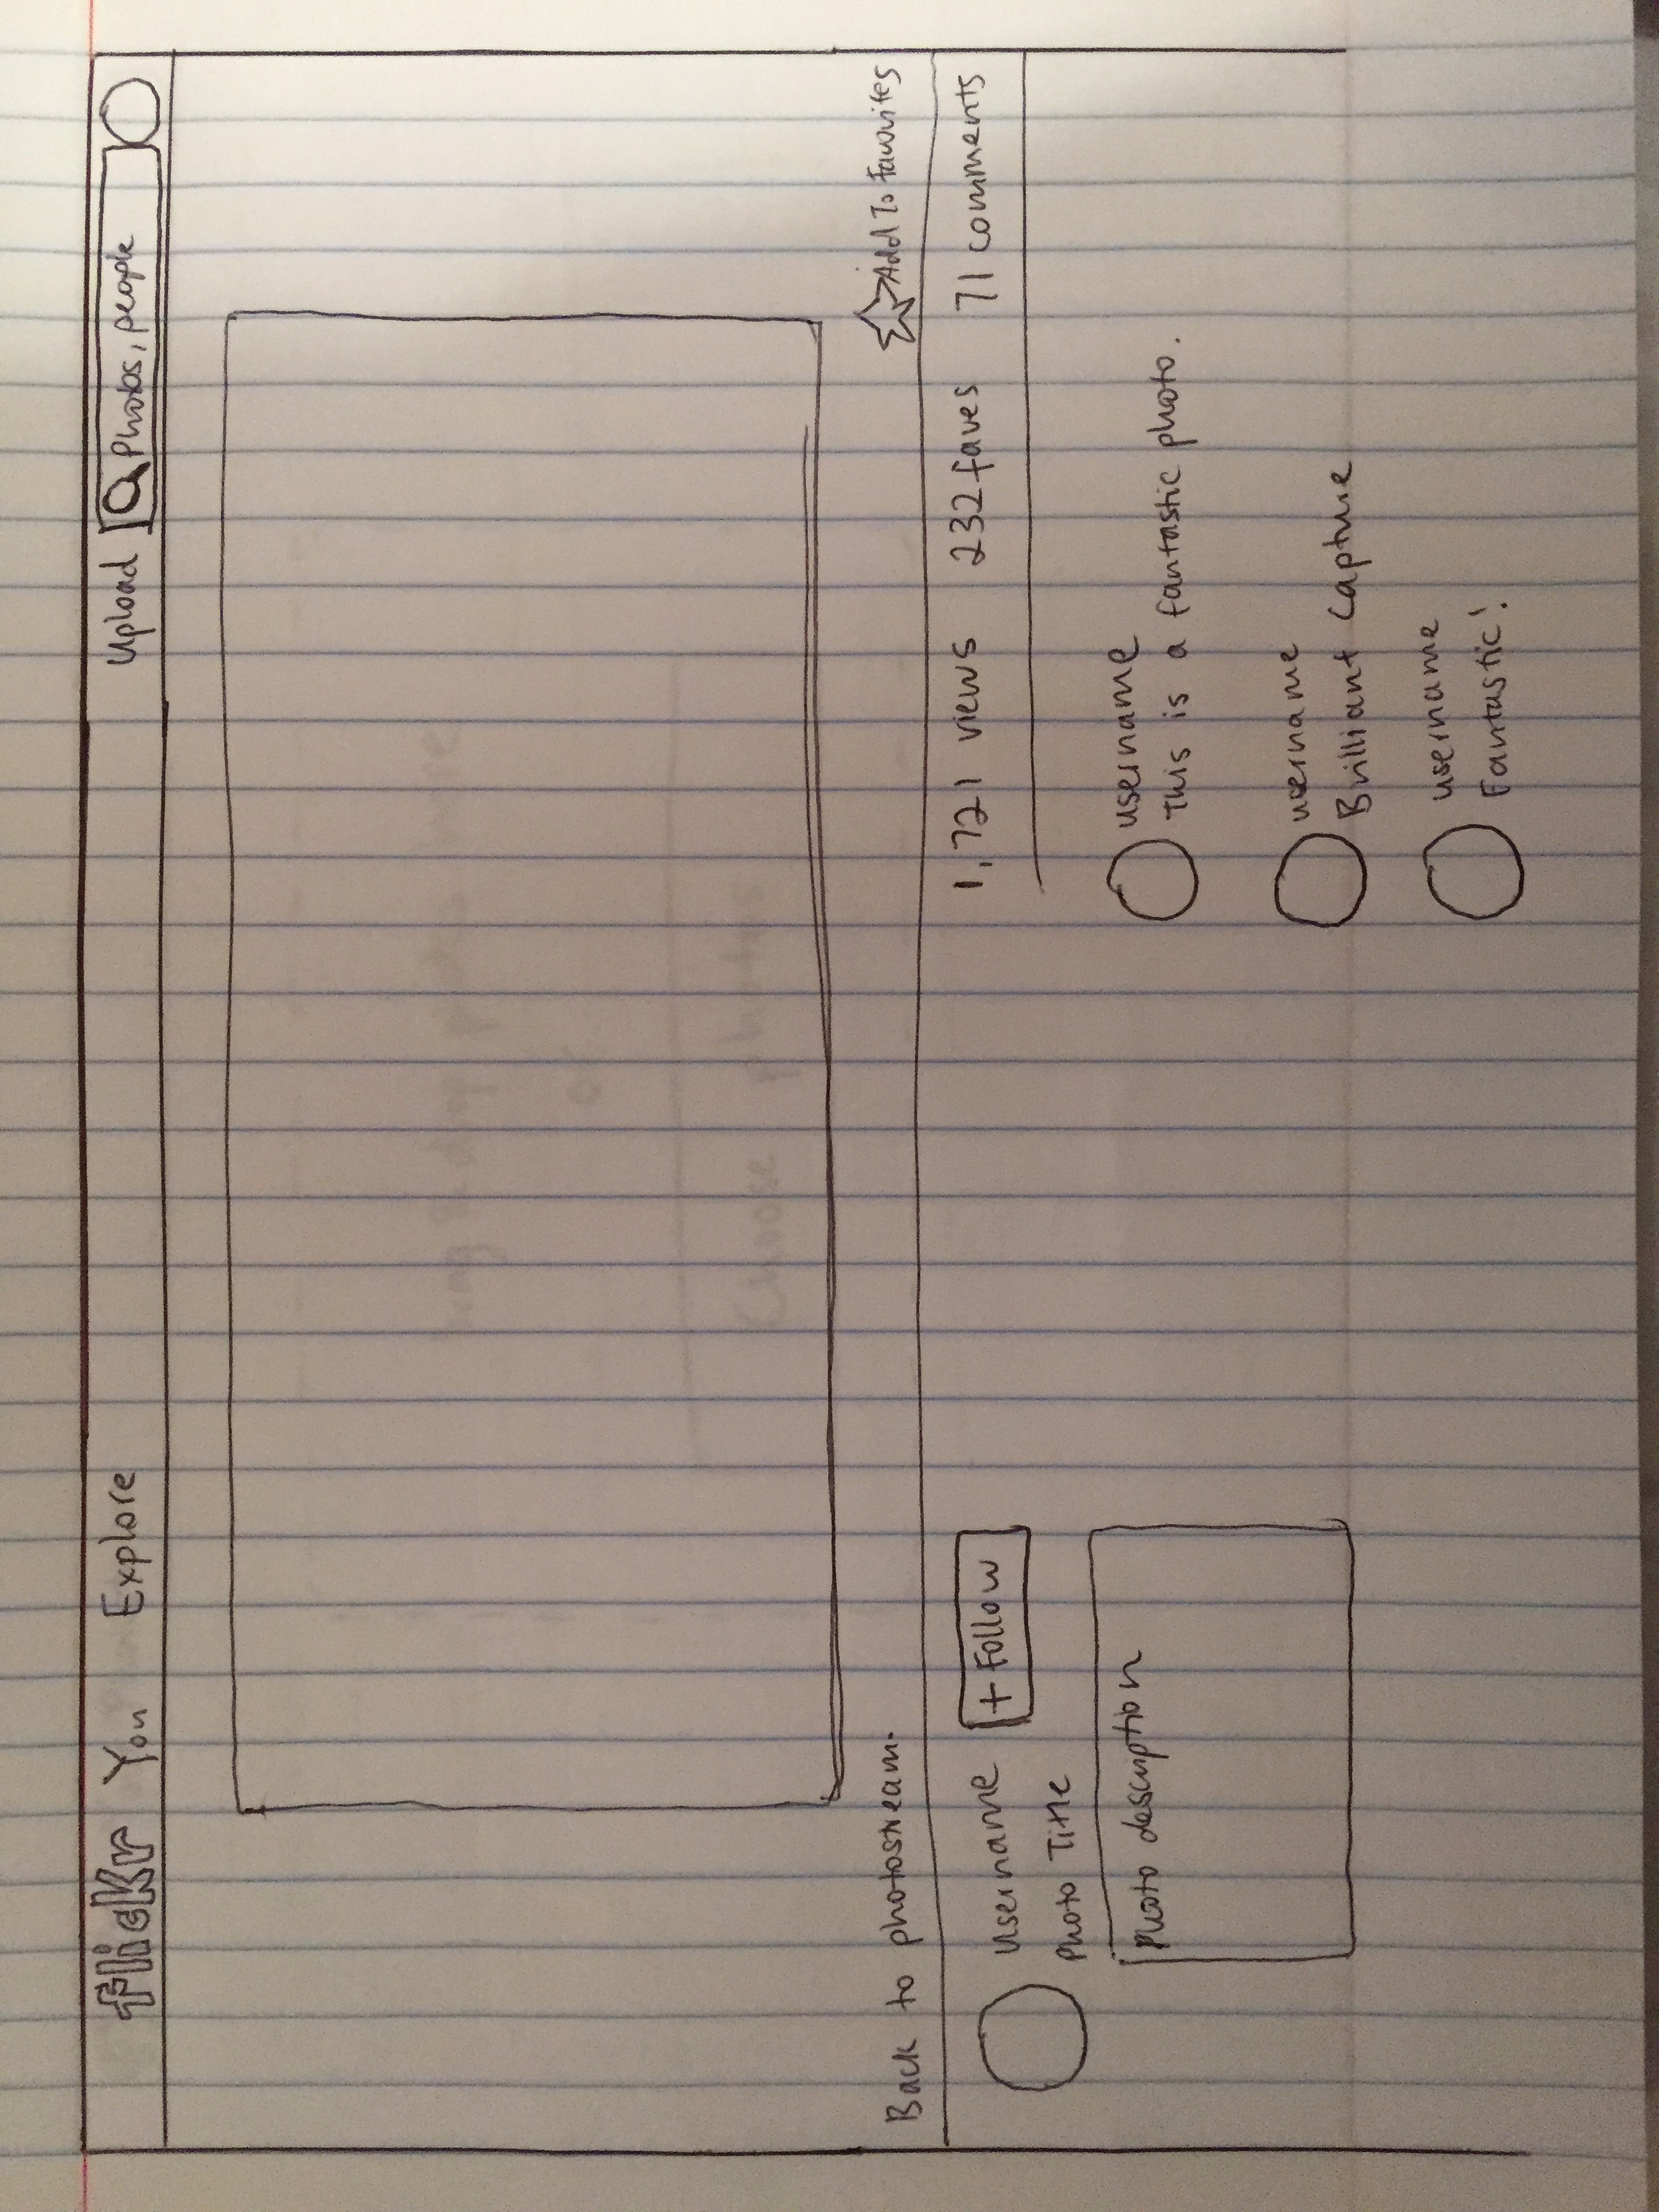 flickr You Explore Upload Photos, people
Back to photostream. Add To Favourites
username + Follow
Photo Title
Photo description
1,721 views 232 faves 71 comments
username
This is a fantastic photo.
username
Brilliant Capture
username
Fantastic!